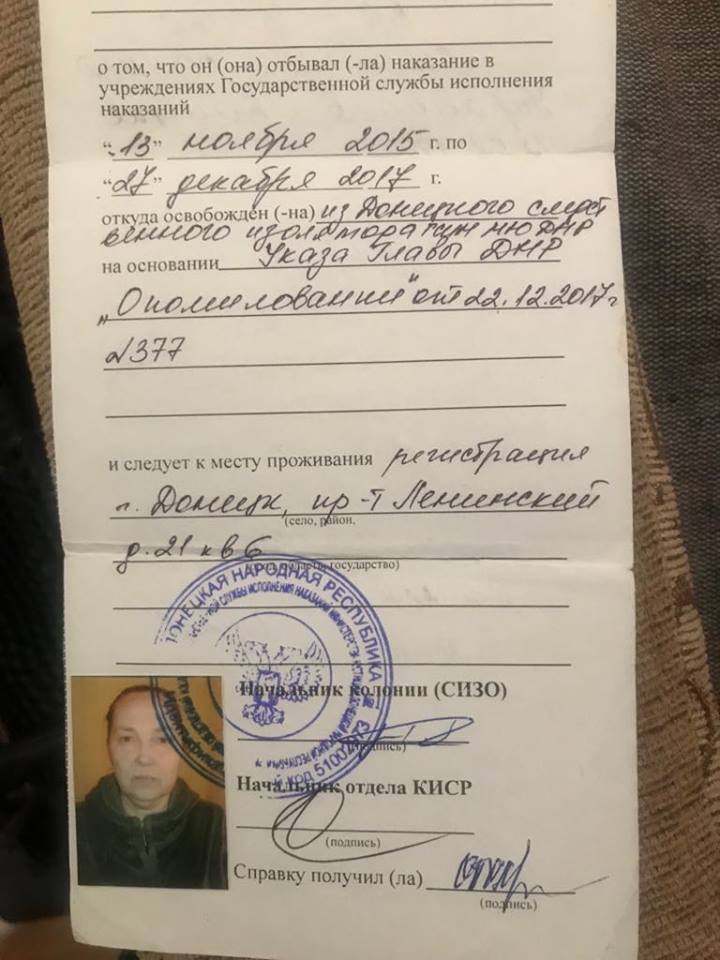 о том, что он (она) отбывал (-ла) наказание в
учреждениях Государственной службы исполнения
наказаний
"13" ноября 2015 г. по
"27" декабря 2017 г.
откуда освобожден (-на) из Донецкого следст
венного изолятора ГСИН МЮ ДНР
на основании Указа Главы ДНР
"О помиловании" от 22.12.2017г
№377
и следует к месту проживания регистрация
г. Донецк, пр-т Ленинский
(село, район,
д. 21 кв 6
государство)
ДОНЕЦКАЯ НАРОДНАЯ РЕСПУБЛИКА
СЛУЖБЫ ИСПОЛНЕНИЯ НАКАЗАНИЙ
Начальник колонии (СИЗО)
(подпись)
Начальник отдела КИСР
(подпись)
Справку получил (ла)
(подпись)